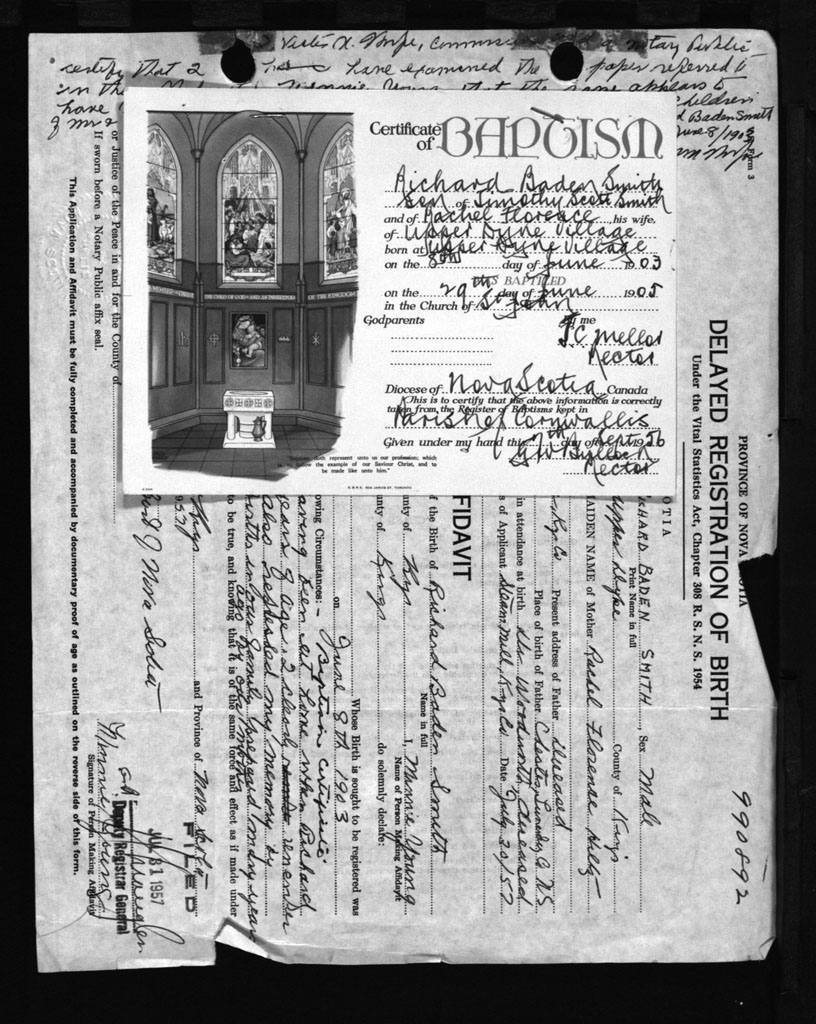 Victor X. Thorpe, Commissioner and a notary Public
certify that I have examined the paper referred to
in the Minnie Young that the same appears to
have children
of Mr & Baden Smith
June 8/1903
Form 3
Certificate of BAPTISM
Richard Baden Smith
Son of Timothy Scott Smith
and of Rachel Florence, his wife,
of Upper Dyke Village
born at Upper Dyke Village
on the 8th day of June 1903
WAS BAPTIZED
on the 29th day of June 1905
in the Church of St. John
Godparents By me
F. C. Mellor
Rector
Diocese of Nova Scotia, Canada
This is to certify that the above information is correctly
taken from the Register of Baptisms kept in
Parish of Cornwallis
Given under my hand this day of Sept 1956
Bullock
Rector
THE CHILD OF GOD AND AN INHERITOR
OF THE KINGDOM
"Baptism doth represent unto us our profession; which
is to follow the example of our Saviour Christ, and to
be made like unto him."
990892
PROVINCE OF NOVA SCOTIA
DELAYED REGISTRATION OF BIRTH
Under the Vital Statistics Act, Chapter 308 R. S. N. S. 1954
OTIA
RICHARD BADEN SMITH, Sex Male
Print Name in full
Upper Dyke County of Kings
MAIDEN NAME of Mother Rachel Florence
Present address of Father deceased
Place of birth of Father Chester, Lunenburg Co NS
in attendance at birth Dr. Woodworth deceased
s of Applicant Steam Mill, Kings Co Date July 30/57
FIDAVIT
f the Birth of Richard Baden Smith
Name in full
I, Minnie Young
Name of Person Making Affidavit
unty of Kings
unty of Kings do solemnly declare:
Whose Birth is sought to be registered was
on June 8th 1903
owing Circumstances:— Baptism certificate
aving been at home when Richard
years of age. I clearly remember
also refreshed my memory by
births in our family prepared many years
ago by our mother
to be true, and knowing that it is of the same force and effect as if made under
Kings and Province of Nova Scotia
FILED
JUL 31 1957
Deputy Registrar General
Minnie Young
Signature of Person Making Affidavit
Nova Scotia
or Justice of the Peace in and for the County of
If sworn before a Notary Public affix seal.
This Application and Affidavit must be fully completed and accompanied by documentary proof of age as outlined on the reverse side of this form.